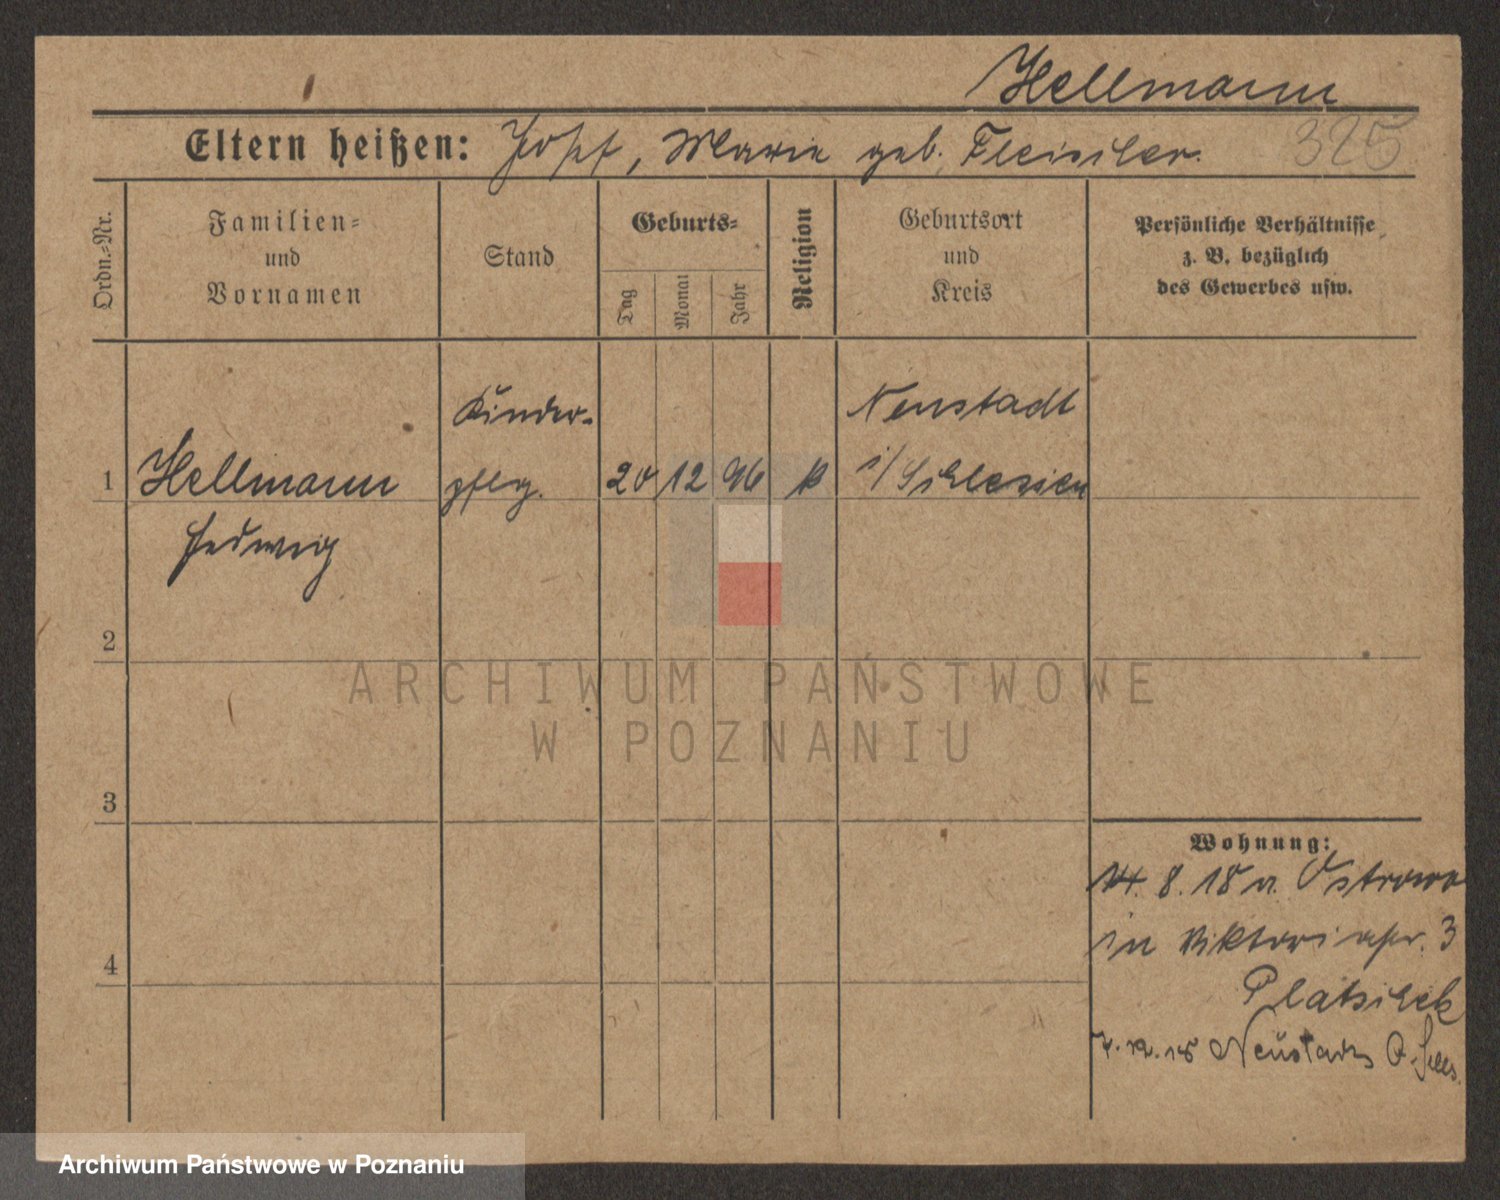 Hellmann
Eltern heißen: Josef, Marie geb. Fleischer.
325
Ordn.-Nr.
Familien-
und
Vornamen
Stand
Geburts-
Tag
Monat
Jahr
Religion
Geburtsort
und
Kreis
Persönliche Verhältnisse
z. B. bezüglich
des Gewerbes usw.
1
Hellmann
Hedwig
Kinder-
pfleg.
20 12 96 k
Neustadt
i/Schlesien
2
3
4
Wohnung:
14. 8. 18 v. Ostrowo
in Viktoriastr. 3
Platschek
7. 12. 18 Neustadt O. Schles.
ARCHIWUM PAŃSTWOWE
W POZNANIU
Archiwum Państwowe w Poznaniu